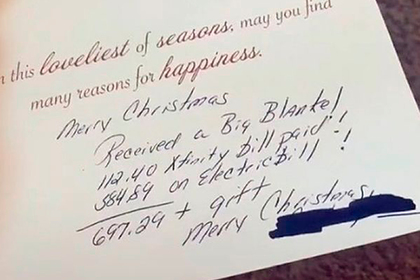 n this loveliest of seasons, may you find
many reasons for happiness.
Merry Christmas
Received a Big Blanket
112.40 Xfinity bill paid!
584.89 on Electric Bill!
697.29 + gift
Merry Christmas